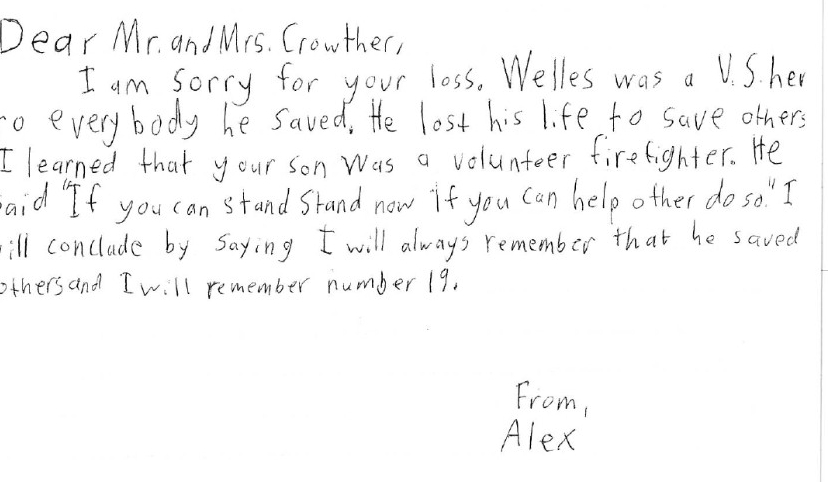 Dear Mr. and Mrs. Crowther,
I am sorry for your loss. Welles was a U.S. her
ro everybody he saved. He lost his life to save others
I learned that your son was a volunteer firefighter. He
said "If you can stand Stand now if you can help other do so." I
will conclude by saying I will always remember that he saved
others and I will remember number 19.
From,
Alex